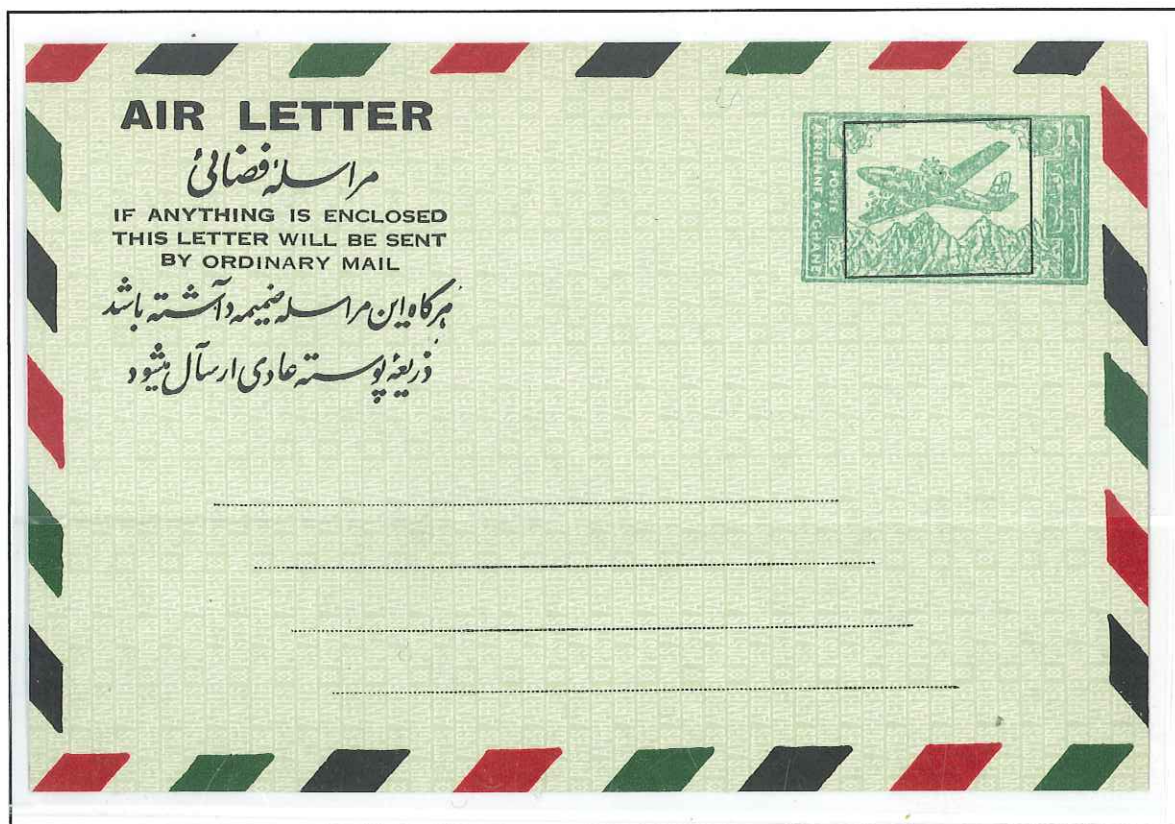 AIR LETTER
مراسلهٔ فضائی
IF ANYTHING IS ENCLOSED
THIS LETTER WILL BE SENT
BY ORDINARY MAIL
هرگاه این مراسله ضمیمه داشته باشد
ذریعهٔ پوسته عادی ارسال میشود
POSTE
AERIENNE AFGHANE